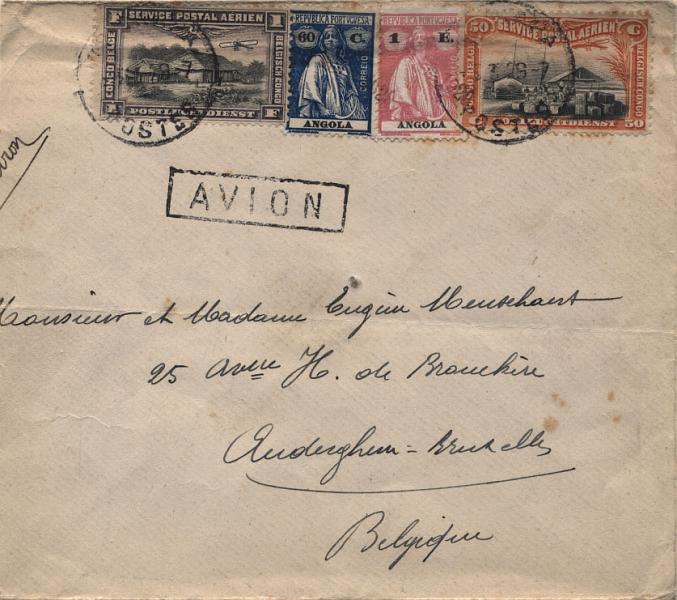 F SERVICE POSTAL AÉRIEN 1
CONGO BELGE
BELGISCH CONGO
1 F POSTLUCHTDIENST F
REPUBLICA PORTUGUESA
60 C.
CORREIO
ANGOLA
REPUBLICA PORTUGUESA
1 E.
ANGOLA
50 SERVICE POSTAL AÉRIEN C
CONGO BELGE
BELGISCH CONGO
C POSTLUCHTDIENST 50
POSTES
POSTES
AVION
Monsieur et Madame Eugène
25 avenue H. de Brouckère
Auderghem - Bruxelles
Belgique